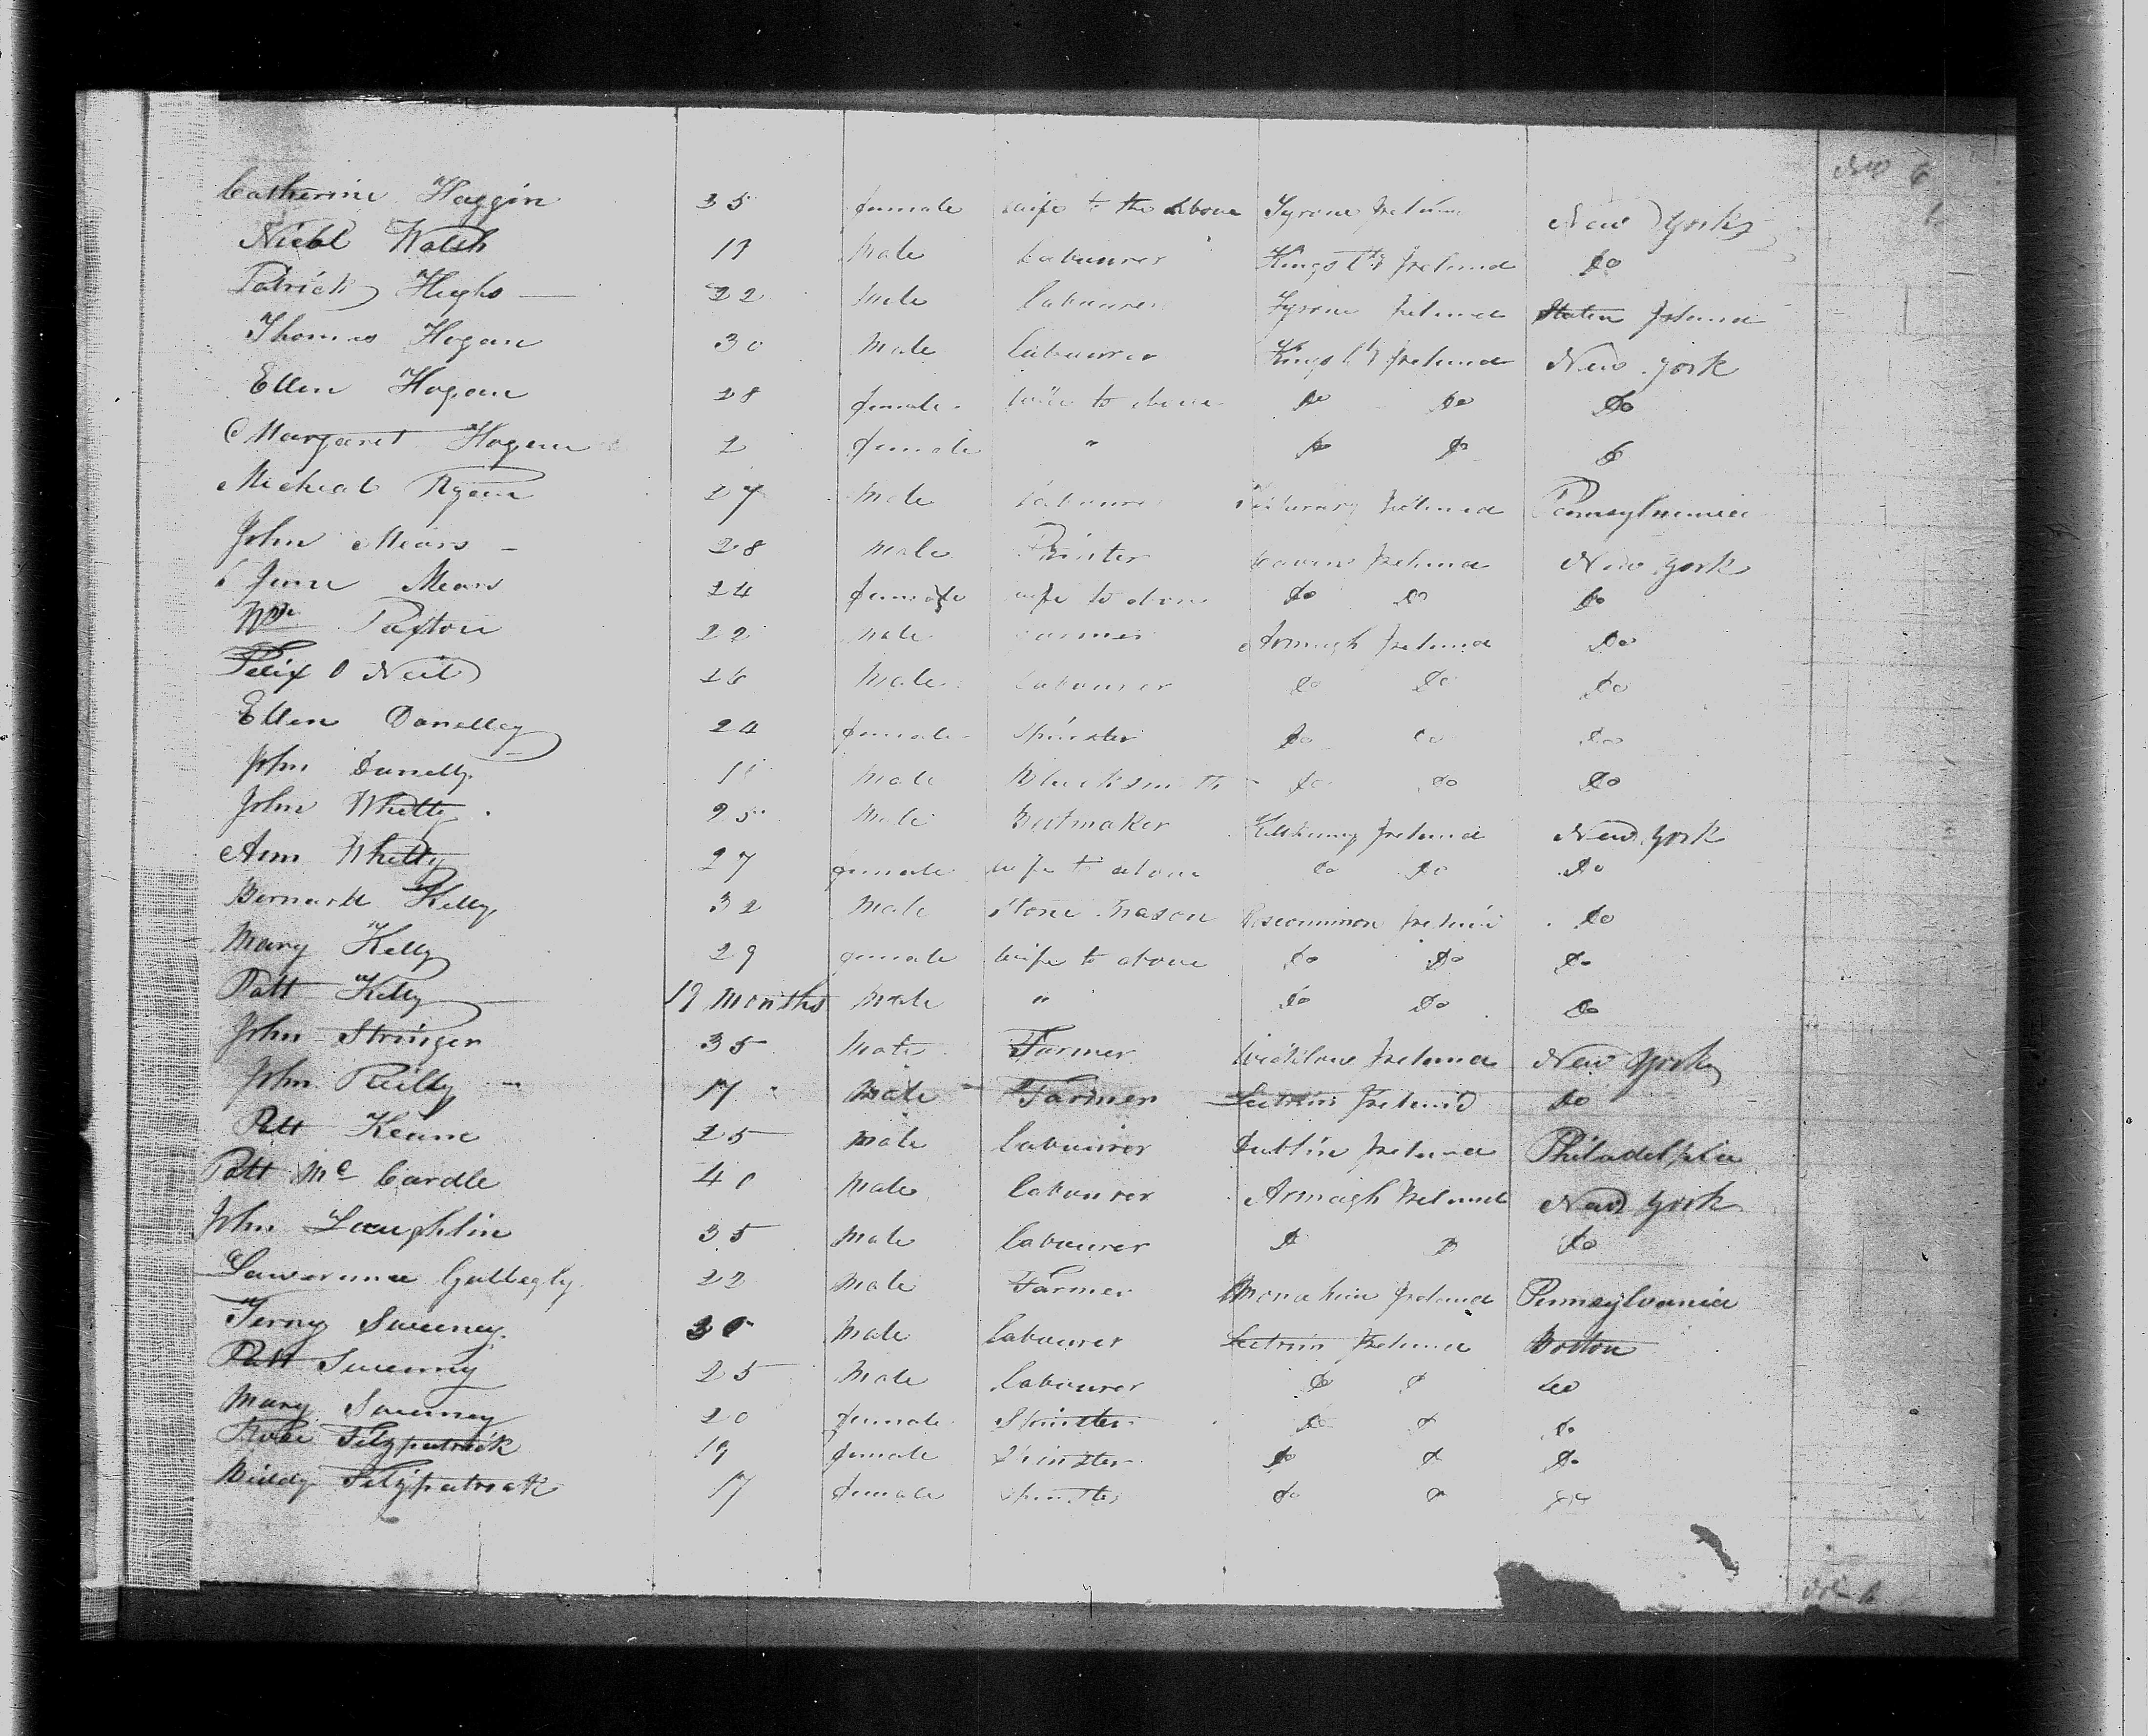 Catherine Haggin 35 female wife to the above Tyrone Ireland New York
Niebl Walsh 19 Male Labourer Kings Cty Ireland Do
Patrick Hughs 22 Male Labourer Tyrone Ireland Staten Island
Thomas Hogan 30 Male Labourer Kings Cty Ireland New York
Ellen Hogan 28 female wife to above Do Do Do
Margaret Hogan 2 female " Do Do Do
Micheal Ryan 27 Male Labourer Ireland Pennsylvania
John Mears 28 Male Cavan Ireland New York
Jane Mears 24 female wife to above Do Do Do
Wm Paxton 22 Male Farmer Armagh Ireland Do
Felix O Neil 26 Male Labourer Do Do Do
Ellen Donelley 24 female Spinster Do Do Do
John Donelly Male Blacksmith Do Do Do
John Whitty Male Bootmaker Kilkenny Ireland New York
Ann Whitty 27 female wife to above Do Do Do
Bernard Kelly 32 Male Stone Mason Roscommon Ireland Do
Mary Kelly 29 female wife to above Do Do Do
Patt Kelly 19 Months Male " Do Do Do
John Stringer 35 Male Farmer Wicklow Ireland New York
John Reilly 17 Male Farmer Leitrim Ireland Do
Patt Keane 25 Male Labourer Dublin Ireland Philadelphia
Patt Mc Cardle 40 Male Labourer Armagh Ireland New York
John Laughlin 35 Male Labourer Do Do Do
Lawerance Gallegly 22 Male Farmer Monahan Ireland Pennsylvania
Terry Sweeney 30 Male Labourer Leitrim Ireland Boston
Patt Sweeney 25 Male Labourer Do Do Do
Mary Sweeney 20 female Spinster Do Do Do
Rose Fitzpatrick 19 female Spinster Do Do Do
Biddy Fitzpatrick 17 female Spinster Do Do Do